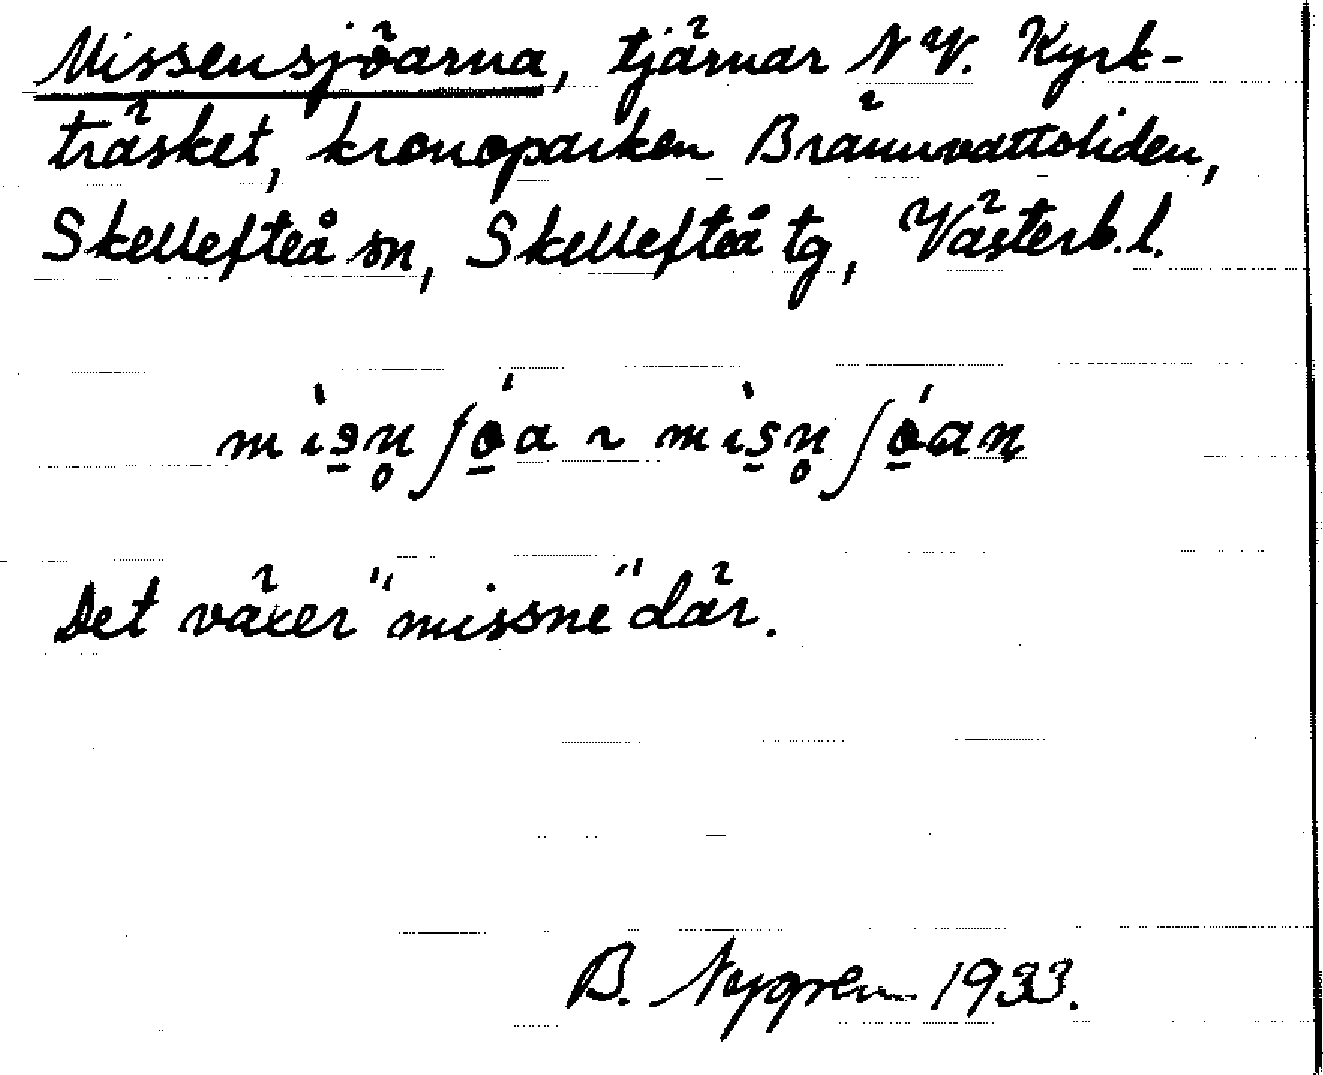 Missensjöarna, tjärnar N V. Kyrk-
träsket, kronoparken Brännvattsliden,
Skellefteå sn, Skellefteå tg, Västerb.l.
mìs̱n̥ʃó̱a ~ mìs̱n̥ʃó̱aɳ
Det växer "missne" där.
B. Nygren 1933.